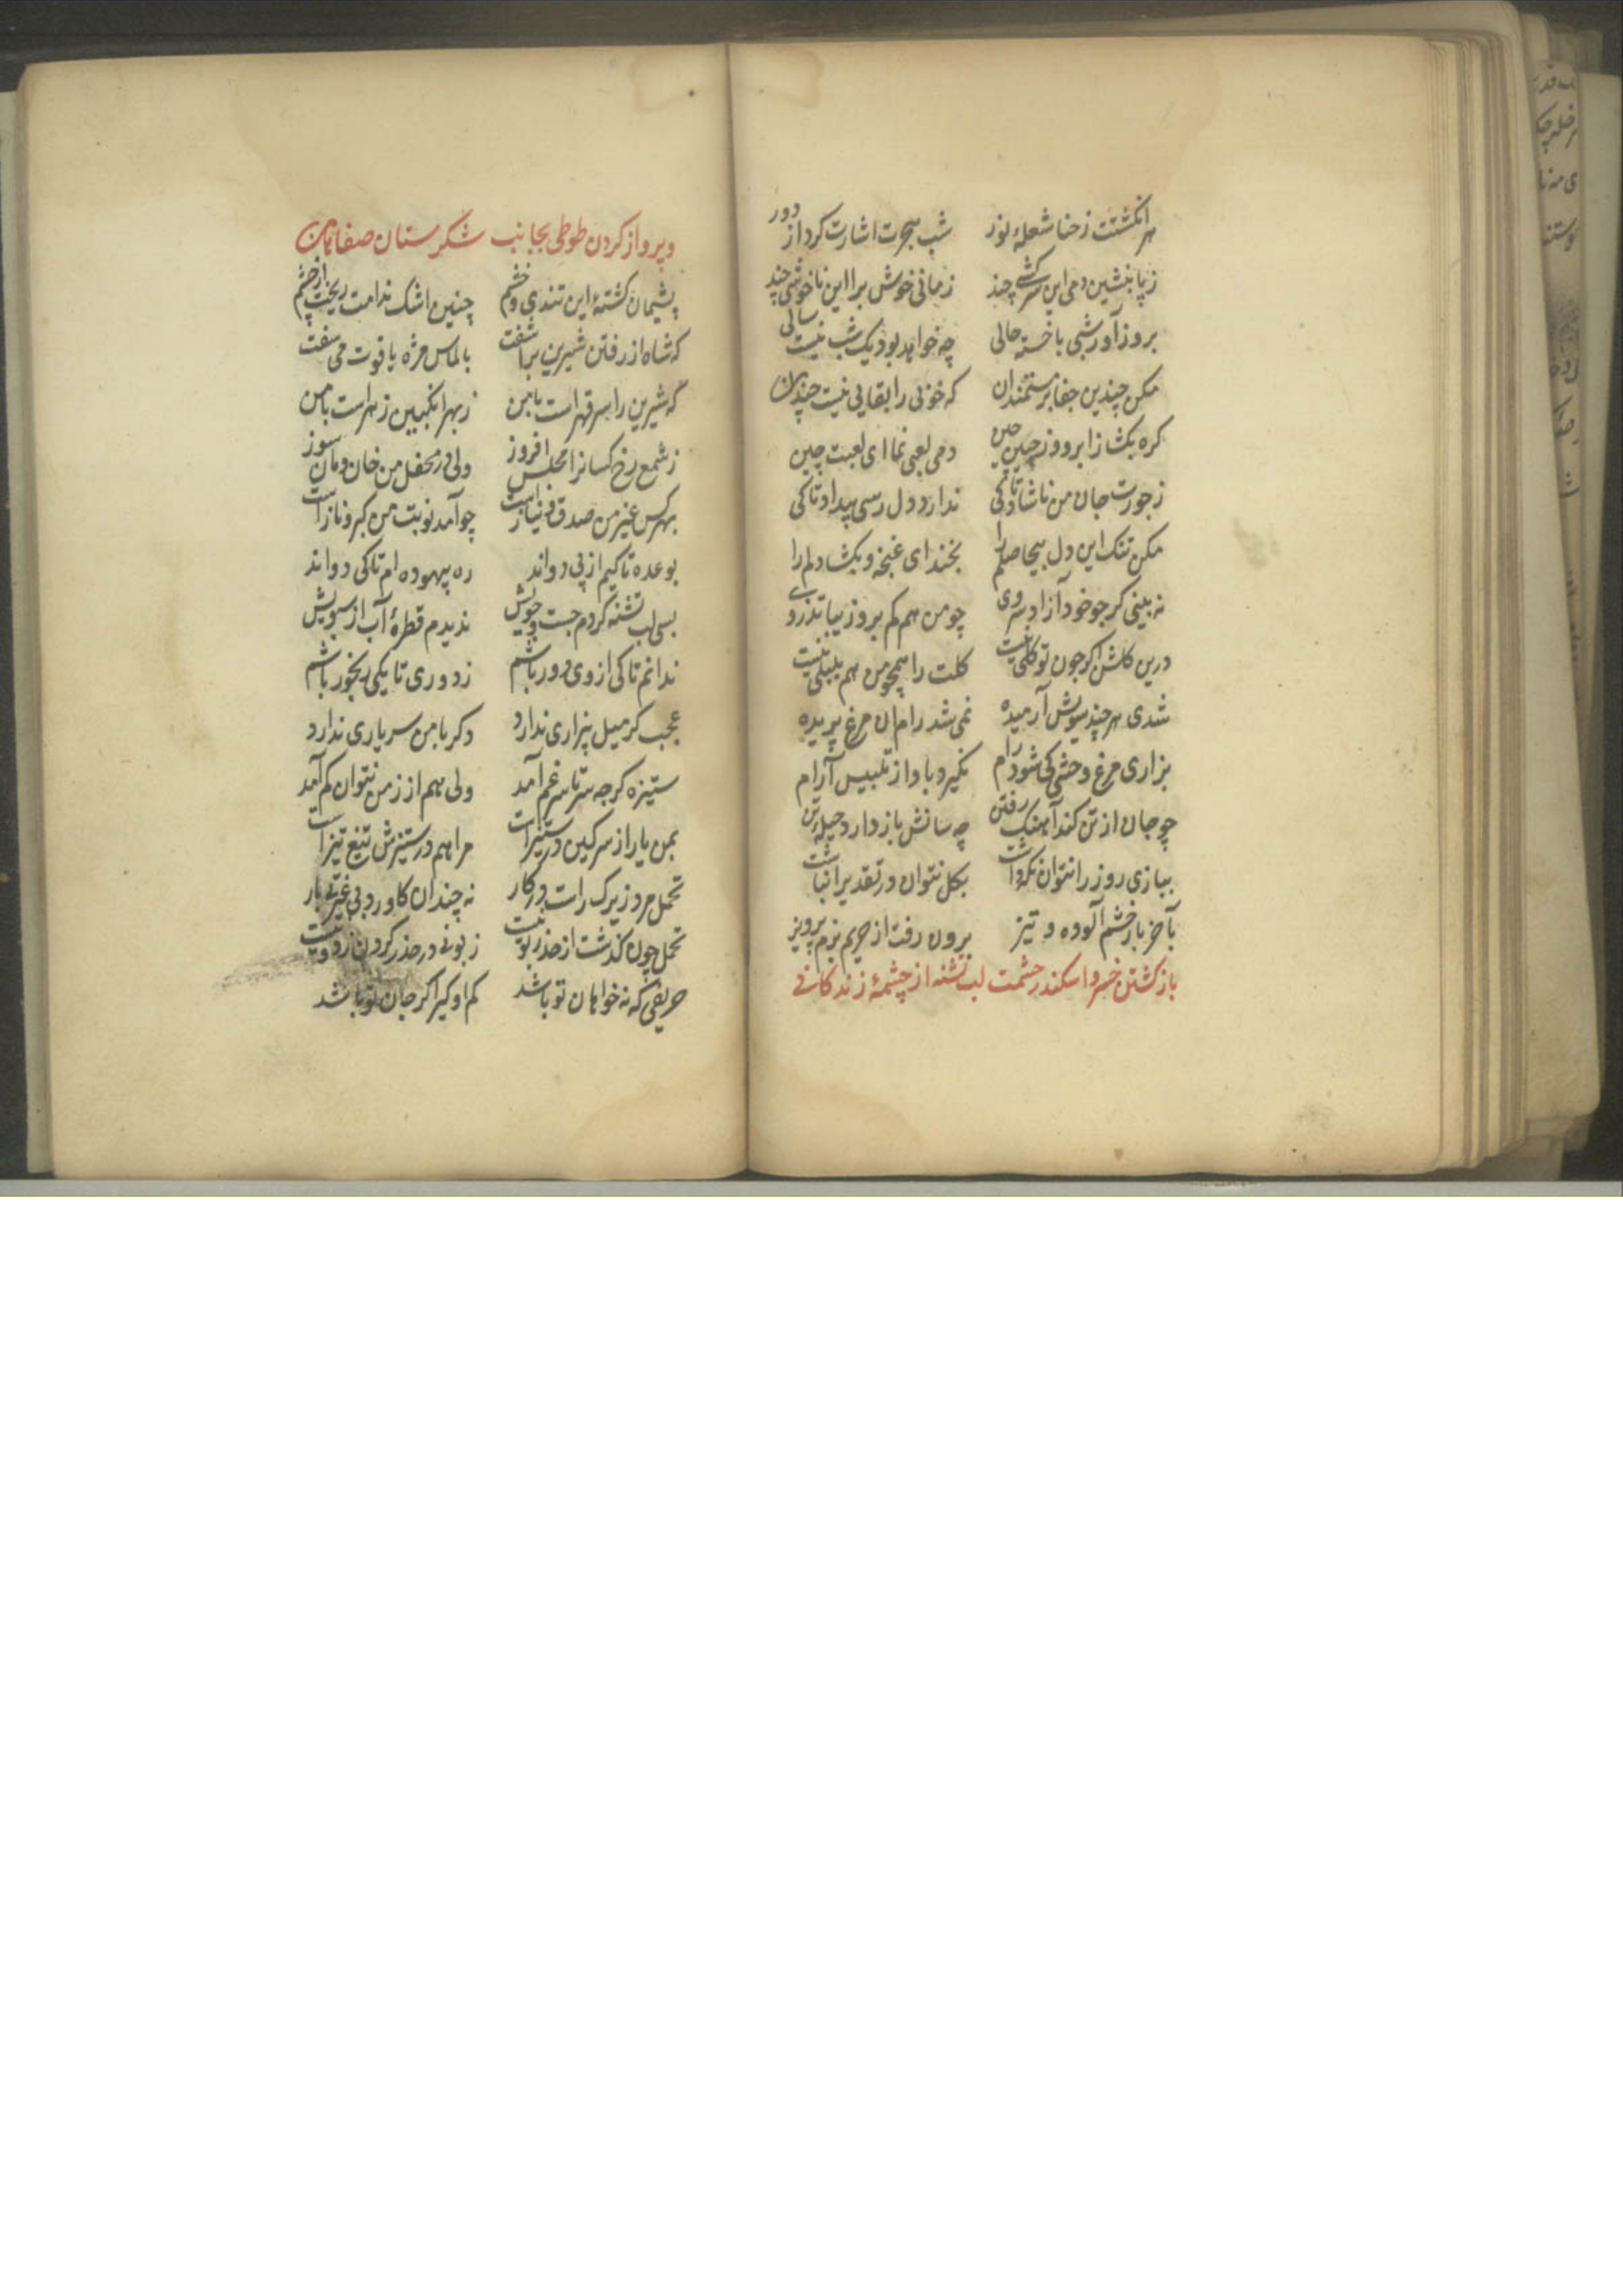 هر انگشتت ز حنا شعلهٔ نور شب هجرت اشارت کرد از دور
ز پا بنشین دمی این سرکشی چند زمانی خوش برا این ناخوشی چند
بروز آور شبی با خسته حالی چه خواهد بود یک شب نیست سالی
مکن چندین جفا بر مستمندان که خوبی را بقایی نیست چندان
کره بکشا ز ابرو وز جبین چین دمی لعبی نما ای لعبت چین
ز جورت جان من ناشاد تا کی ندارد دل رسی بیداد تا کی
مکن تنک این دل بیحاصلم را بخند ای غنچه و بکشا دلم را
نه بینی کر جو خود آزاد سروی چو من هم کم بروز یبا تذروی
درین کلشن اکر جون تو کلی نیست کلت را همچو من هم بلبلی نیست
شدی هر چند سویش آرمیده نمی شد رام ان مرغ پریده
بزاری مرغ وحشی کی شود رام نکیرد باد از تلبیس آرام
چو جان از تن کند آهنک رفتن چه سانش باز دارد حیلهٔ تن
ببازی روز را نتوان نکه داشت بکل نتوان در تقدیر انباشت
بآخر با خشم آلوده و تیز برون رفت از حریم بزم پرویز
بازکشتن خسرو اسکندر حشمت لب تشنه از چشمهٔ زندکانی
و پرواز کردن طوطی بجانب شکرستان صفاهان
پشیمان کشتهٔ این تندی و خشم چنین اشک ندامت ریخت از چشم
که شاه از رفتن شیرین برآشفت بالماس مژه یاقوت می سفت
که شیرین را سر قهر است با من ز بهر انکبین زهر است با من
ز شمع رخ کسانرا مجلس افروز ولی در محفل من خان و مان سوز
بهر کس غیر من صدق و نیاز است چو آمد نوبت من کبر و ناز است
بوعده تا کیم از پی دواند ره بیهوده ام تا کی دواند
بسی لب تشنه کردم جست و جویش ندیدم قطرهٔ آب از سبویش
ندانم تا کی از وی دور باشم ز دوری تا بکی رنجور باشم
عجب کر میل بیزاری ندارد دکر با من سر یاری ندارد
ستیزه کرجه سرتاسر غم آمد ولی هم از زمن نتوان کم آمد
بمن یار از سر کین در ستیز است مرا هم در ستیزش تیغ تیز است
تحمل مرد زیرک راست در کار نه چندان کاورد بی غیرتی بار
تحمل چون کذشت از حد زبونیست زبونی در حذر کردن ز دونیست
حریفی که نه خواهان تو باشد کم او کیر اکر جان تو باشد